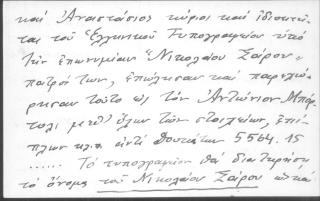 καί Ἀναστάσιος κύριοι καί ἰδιοκτῆ-
ται τοῦ Ἑλληνικοῦ Τυπογραφείου ὑπό
τήν ἐπωνυμίαν "Νικολάου Σάρου"
πατρός των, ἐπώλησαν καί παρεχώ-
ρησαν τοῦτο εἰς τόν Ἀντώνιον Μπόρ-
τολι μεθ' ὅλων τῶν στοιχείων, ἐπί-
πλων κ.λ.π. ἀντί δουκάτων 5564.15
...... Τό τυπογραφεῖον θά διατηρήσῃ
τό ὄνομα τοῦ Νικολάου Σάρου